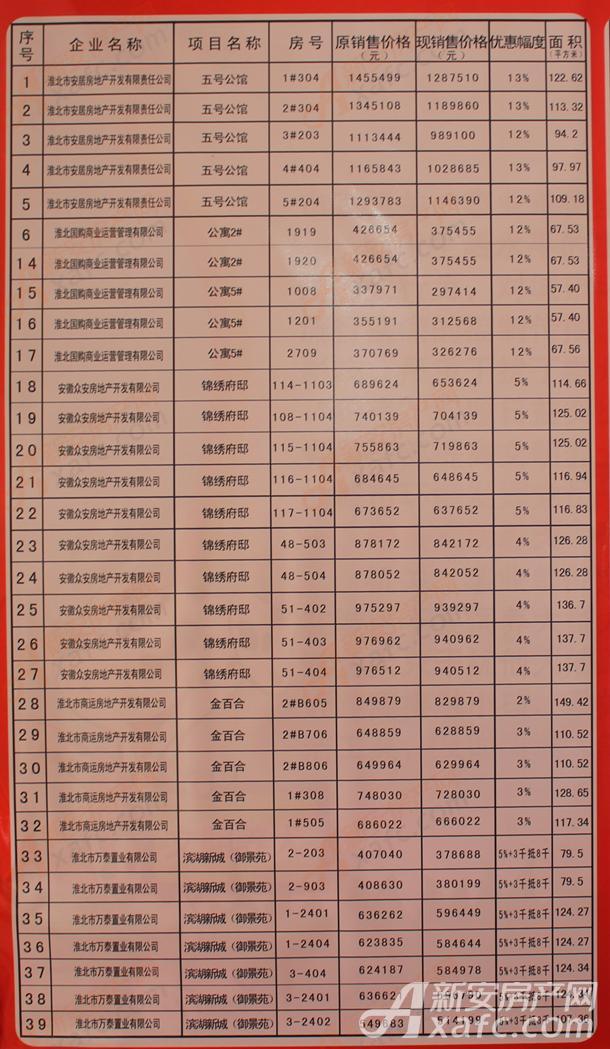 序号 企业名称 项目名称 房号 原销售价格(元) 现销售价格(元) 优惠幅度 面积(平方米)
1 淮北市安居房地产开发有限责任公司 五号公馆 1#304 1455499 1287510 13% 122.62
2 淮北市安居房地产开发有限责任公司 五号公馆 2#304 1345108 1189860 13% 113.32
3 淮北市安居房地产开发有限责任公司 五号公馆 3#203 1113444 989100 12% 94.2
4 淮北市安居房地产开发有限责任公司 五号公馆 4#404 1165843 1028685 13% 97.97
5 淮北市安居房地产开发有限责任公司 五号公馆 5#204 1293783 1146390 12% 109.18
6 淮北国购商业运营管理有限公司 公寓2# 1919 426654 375455 12% 67.53
14 淮北国购商业运营管理有限公司 公寓2# 1920 426654 375455 12% 67.53
15 淮北国购商业运营管理有限公司 公寓5# 1008 337971 297414 12% 57.40
16 淮北国购商业运营管理有限公司 公寓5# 1201 355191 312568 12% 57.40
17 淮北国购商业运营管理有限公司 公寓5# 2709 370769 326276 12% 67.56
18 安徽众安房地产开发有限公司 锦绣府邸 114-1103 689624 653624 5% 114.66
19 安徽众安房地产开发有限公司 锦绣府邸 108-1104 740139 704139 5% 125.02
20 安徽众安房地产开发有限公司 锦绣府邸 115-1104 755863 719863 5% 125.02
21 安徽众安房地产开发有限公司 锦绣府邸 116-1104 684645 648645 5% 116.94
22 安徽众安房地产开发有限公司 锦绣府邸 117-1104 673652 637652 5% 116.83
23 安徽众安房地产开发有限公司 锦绣府邸 48-503 878172 842172 4% 126.28
24 安徽众安房地产开发有限公司 锦绣府邸 48-504 878052 842052 4% 126.28
25 安徽众安房地产开发有限公司 锦绣府邸 51-402 975297 939297 4% 136.7
26 安徽众安房地产开发有限公司 锦绣府邸 51-403 976962 940962 4% 137.7
27 安徽众安房地产开发有限公司 锦绣府邸 51-404 976512 940512 4% 137.7
28 淮北市商运房地产开发有限公司 金百合 2#B605 849879 829879 2% 149.42
29 淮北市商运房地产开发有限公司 金百合 2#B706 648859 628859 3% 110.52
30 淮北市商运房地产开发有限公司 金百合 2#B806 649964 629964 3% 110.52
31 淮北市商运房地产开发有限公司 金百合 1#308 748030 728030 3% 128.65
32 淮北市商运房地产开发有限公司 金百合 1#505 686022 666022 3% 117.34
33 淮北市万泰置业有限公司 滨湖新城（御景苑） 2-203 407040 378688 5%+3千抵8千 79.5
34 淮北市万泰置业有限公司 滨湖新城（御景苑） 2-903 408630 380199 5%+3千抵8千 79.5
35 淮北市万泰置业有限公司 滨湖新城（御景苑） 1-2401 636262 596449 5%+3千抵8千 124.27
36 淮北市万泰置业有限公司 滨湖新城（御景苑） 1-2404 623835 584644 5%+3千抵8千 124.27
37 淮北市万泰置业有限公司 滨湖新城（御景苑） 3-404 624187 584978 5%+3千抵8千 124.34
38 淮北市万泰置业有限公司 滨湖新城（御景苑） 3-2401 636621 5%+3千抵8千
39 淮北市万泰置业有限公司 滨湖新城（御景苑） 3-2402 549683 514199 5%+3千抵8千 107.36
新安房产网
xafc.com